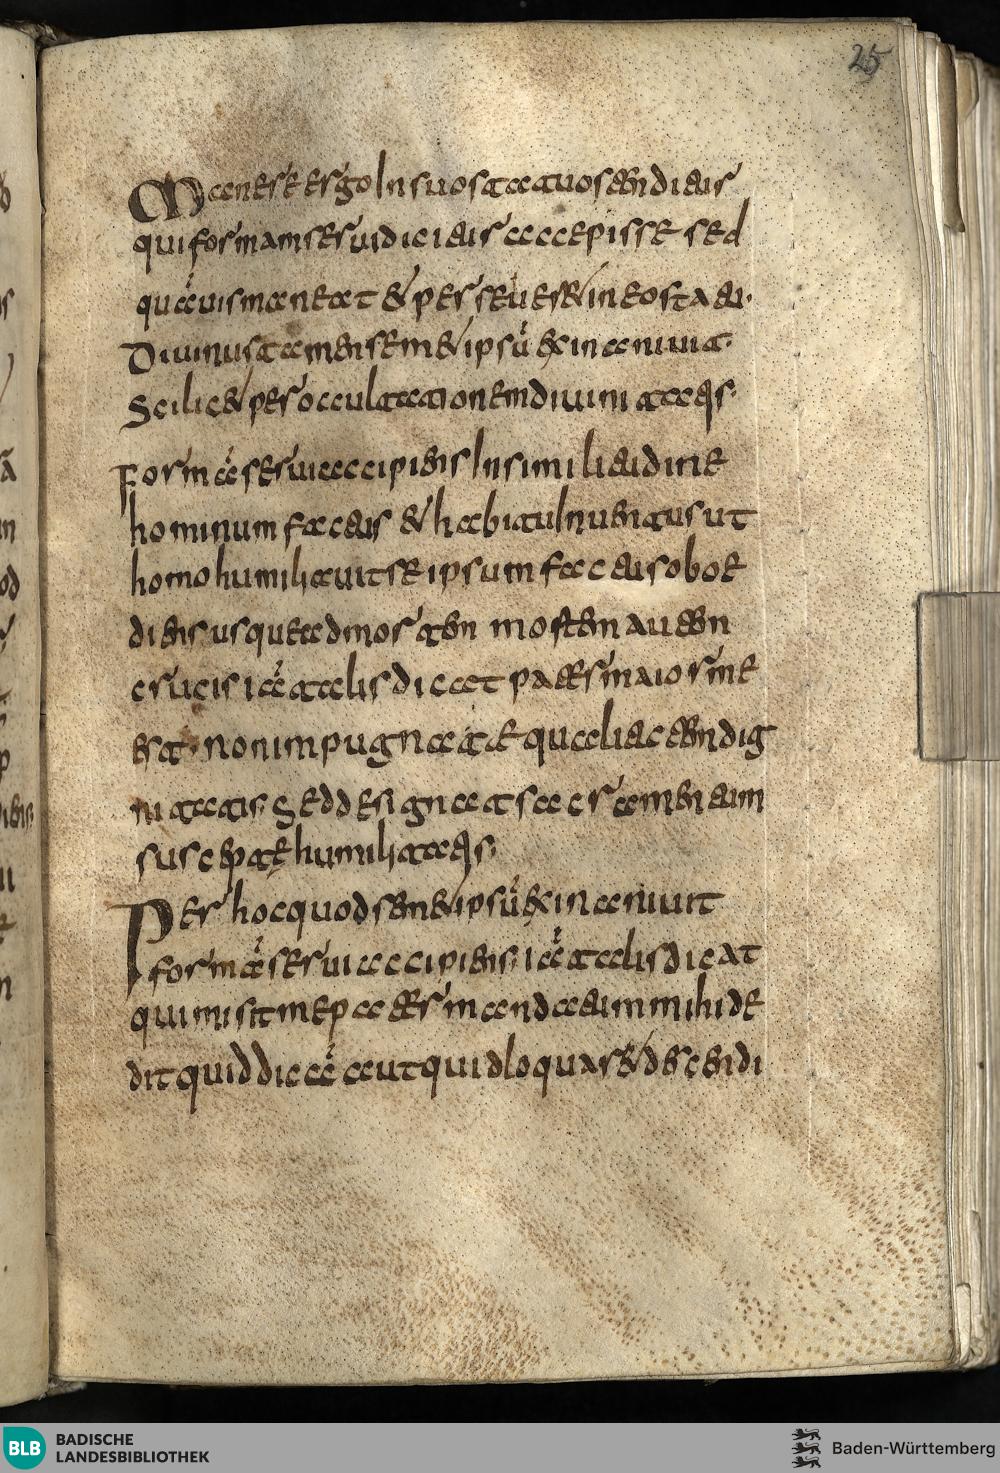 25
Manere ergo In suo statu ostendens
qui formam serui diceris accepisse sed
quāuis maneat & perseueret in eo statu dei.
Diuinus tamen semet ipsū exinaniuit.
Scilicet per occultationem diuinitatis.
Formā serui accipiens In similitudine
hominum factus & habitu Inuentus ut
homo humiliauit se ipsum factus oboe
diens usque ad mortem mortem autem
crucis iā talis dicat pater maior me
est. non inpugnat aequalitatem dig
nitatis. Sed designat sacramentum
susceptae humilitatis.
Per hoc quod semet ipsū exinaniuit
formā serui accipiens. iā talis dicat
qui misit me pater mandatum mihi de
dit quid dicā aut quid loquar & descendi
BLB
BADISCHE
LANDESBIBLIOTHEK
Baden-Württemberg